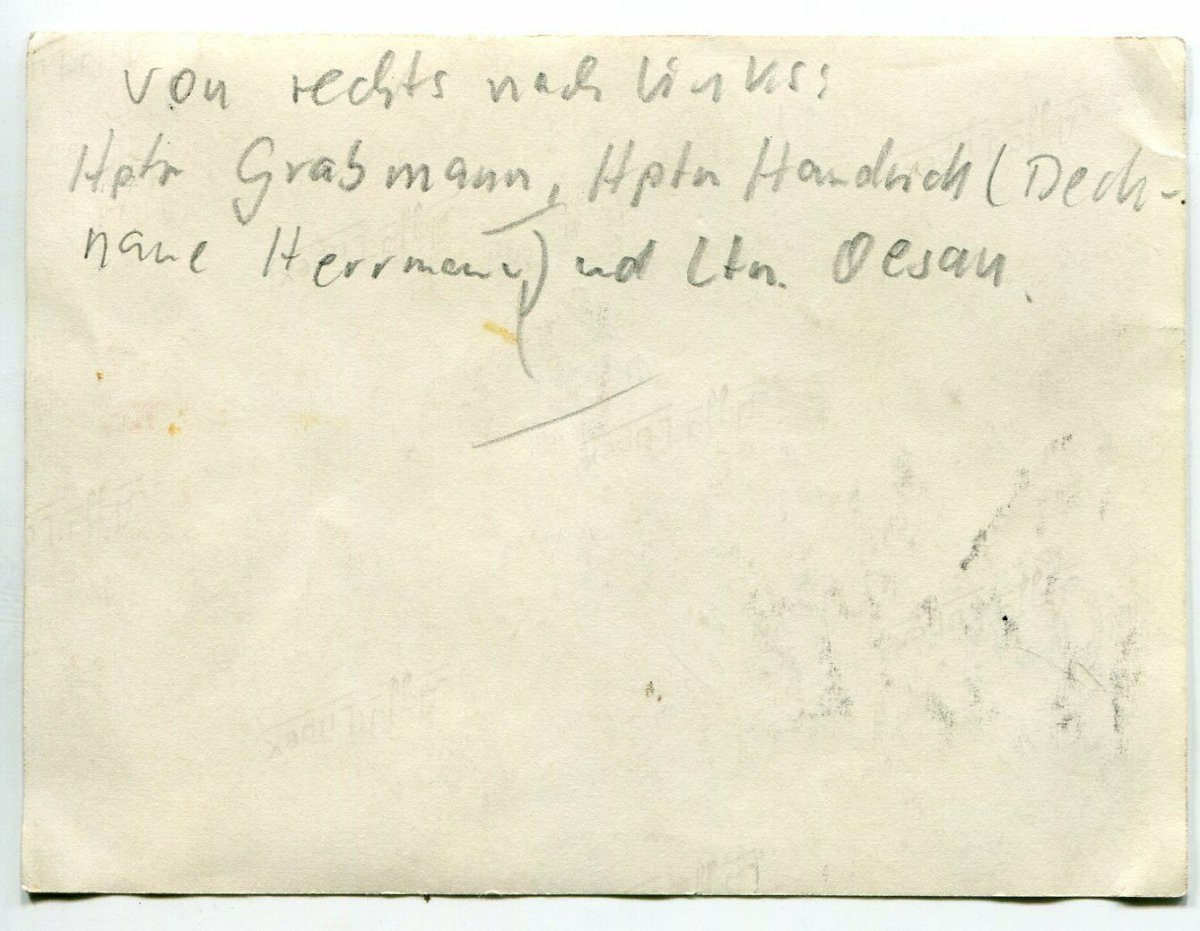 von rechts nach links:
Hptm Grabmann, Hptm Handrick (Deck-
name Herrmann) und Ltn. Oesau.